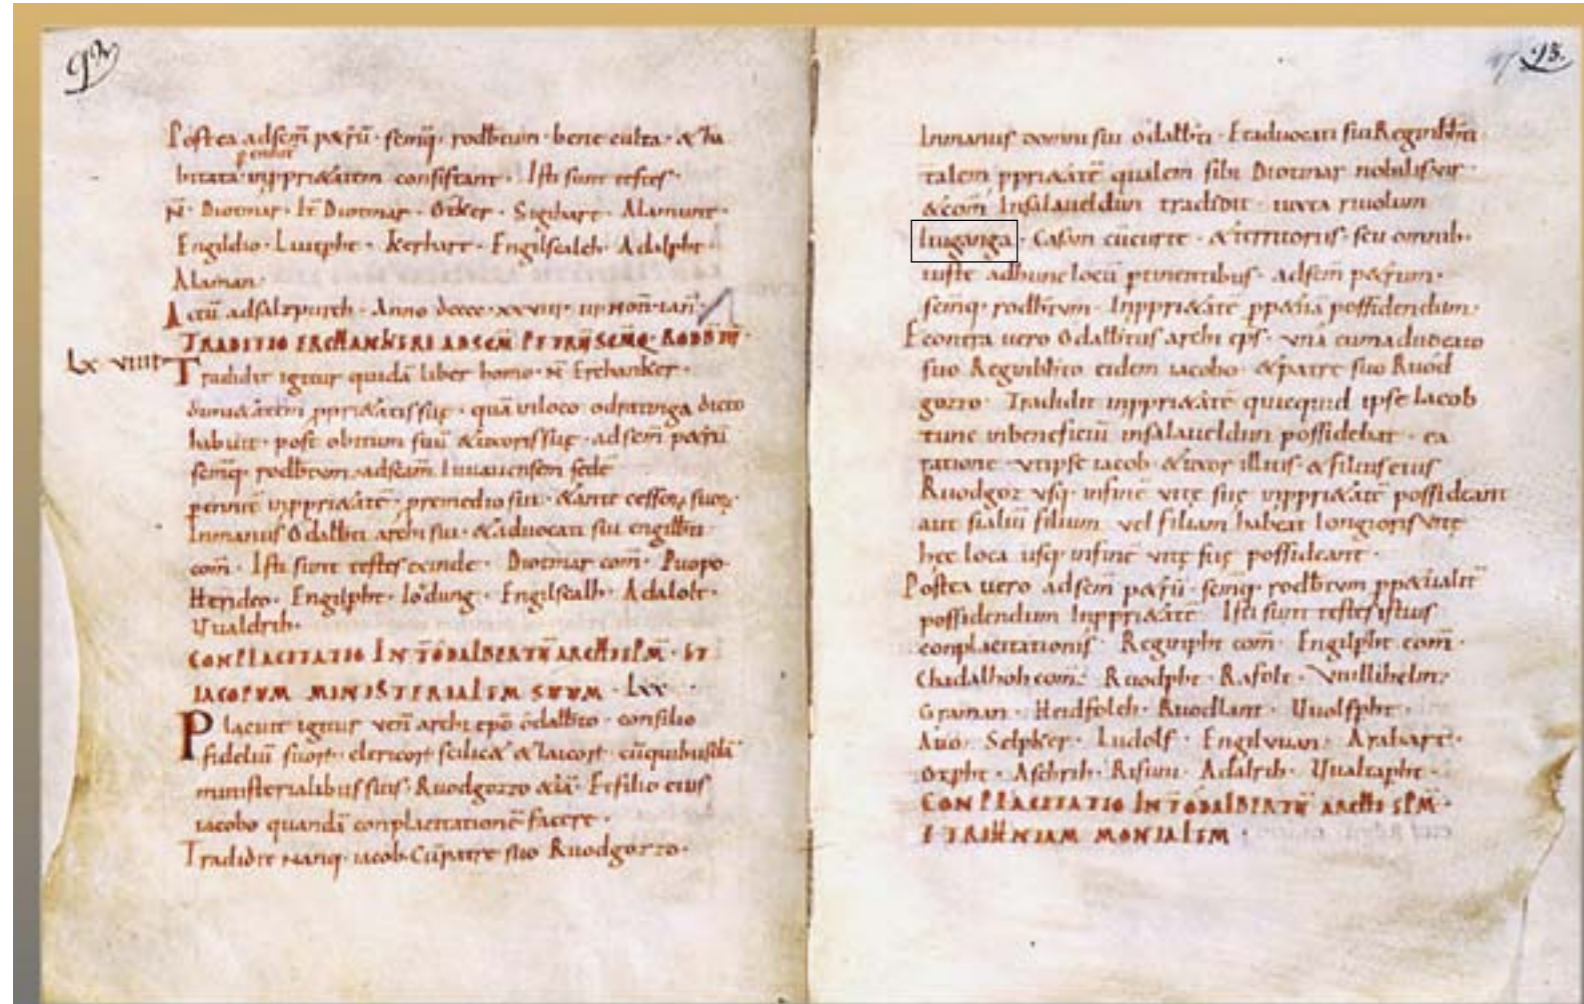 92
Postea adscm petrū · scmq̄ · rodbtum · bene culta · & ha
bitata inppri&atem consistant · Isti sunt testes ·
N̄ · Diotmar · It Diotmar · Otker · Sigihart · Alamunt ·
Engildio · Liutpht · Kerhart · Engilscalch · Adalpht ·
Alaman ·
Actū adsalzpurch · Anno dcccc · xxviii · iii · non̄ · ian̄ ·
TRADITIO ERCHANKERI ADSCM PETRŪ SCMQ · RODBTŪ ·
Lx viiii Tradidit igitur quidā liber homo · N̄ Erchanker ·
ppri&atis suę · quā inloco dicto
habuit · post obitum suū &uxoris suę · ad scm petrū
scmq · rodbtum · adscam Iuuauensem sedē
inppri&atē · premedio sui · &ante
Inmanus Odalbti archi sui · &aduocati sui engilbti
com̄ · Isti sunt testes exinde · Diotmar com̄ · Puopo ·
Engilpht · Engilscalh · Adalolt ·
Uualdrih ·
CONPLACITATIO INT ODALBERTŪ ARCHIEPM · ET
IACOPUM MINISTERIALEM SUUM · Lxx ·
Placuit igitur ven̄ archi epō odalbto · consilio
fideliū suorꝝ · clericorꝝ scilic& & laicorꝝ · cūquibusdā
ministerialibus suis · Ruodgozzo Etfilio eius
iacobo quandā conplacitationē facere ·
Tradidit nanq · iacob · Cūpatre suo Ruodgozzo ·
93.
Inmanus domni sui odalbti · Etaduocati sui Reginbti ·
talem ppri&atē qualem sibi Diotmar nobilis vir ·
&com̄ Insalaueldun tradidit · iuxta riuolum
liuganga · Casam cūcurte · &territoriis · seu omnib ·
iuste adhunc locū ptinentibus · adscm petrum ·
scmq · rodbtum · Inppri&atē pp&ua possidendum ·
Econtra uero Odalbtus archi eps · vna cumaduocato
suo eidem iacobo · &patre suo Ruod
gozzo · Tradidit inppri&atē quicquid ipse Iacob
tunc inbeneficiū insalaueldun possidebat · ea
ratione · vtipse iacob · &uxor illius · & filius eius
Ruodgoz vsq · infinē vitę suę inppri&atē possideant
aut si aliū filium vel filiam habeat longioris vitę
hec loca usq infinē vitę suę possideant ·
Postea uero adscm petrū · scmq · rodbtum
possidendum Inppri&atē · Isti sunt testes istius
conplacitationis · Reginpht com̄ · Engilpht com̄ ·
Chadalhoh com̄ · Ruodpht · Rafolt · Vuillihelm ·
Graman · Heidfolch · Ruodlant · Uuolfpht ·
Auo · Selpker · Ludolf · Engilvuan · Arahart ·
Otpht · Aschrih · Adalrih · Uualtapht ·
CONPLACITATIO INT ODALBERTŪ ARCHIEPM ·
ET RIHNIAM MONIALEM ·